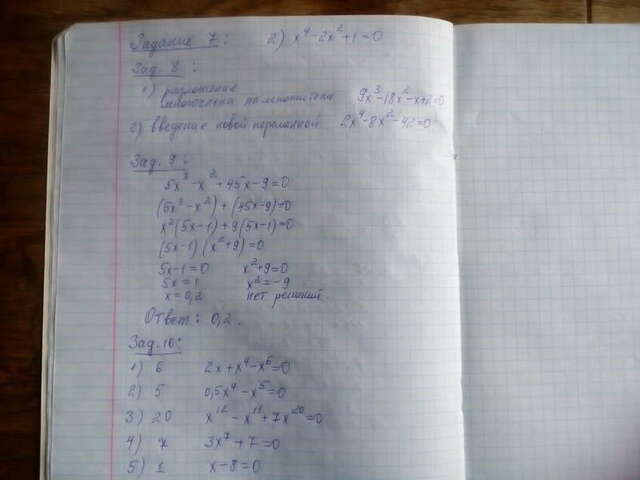 Задание 7: 2) x⁴-2x²+1=0
Зад. 8:
1) разложение
многочлена на множители 9x³-18x²-x+2=0
2) введение новой переменной 2x⁴-8x²-42=0
Зад. 9:
5x³-x²+45x-9=0
(5x³-x²)+(45x-9)=0
x²(5x-1)+9(5x-1)=0
(5x-1)(x²+9)=0
5x-1=0 x²+9=0
5x=1 x²=-9
x=0,2 нет решений.
Ответ: 0,2.
Зад. 10:
1) 6 2x+x⁴-x⁶=0
2) 5 0,5x⁴-x⁵=0
3) 20 x¹²-x¹¹+7x²⁰=0
4) 3x⁷+7=0
5) 1 x-8=0